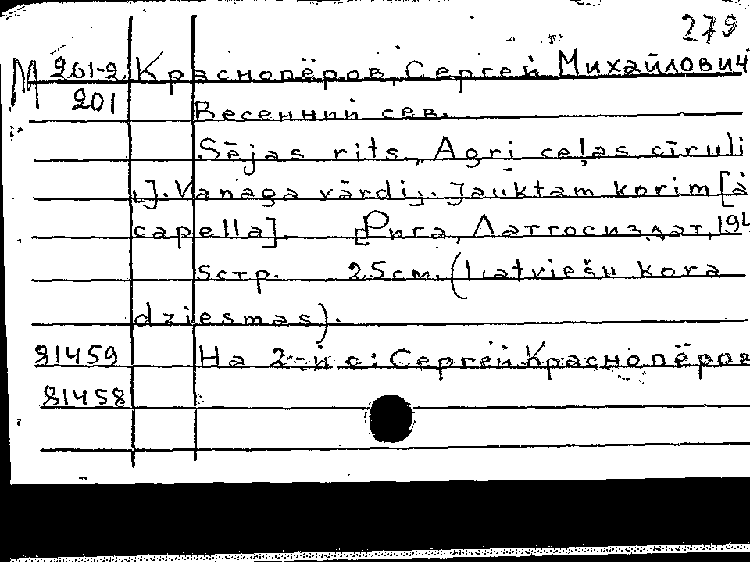 279
М 261-2 Краснопёров, Сергей Михайлович
201 Весенний сев.
Sējas rits, Agri ceļas cīruli
J. Vanaga vārdi. Jauktam korim [à
capella]. [Рига, Латгосиздат, 194
5 стр. 25 см. (Latviešu kora
dziesmas).
81459 На 2-й с: Сергей Краснопёров
81458